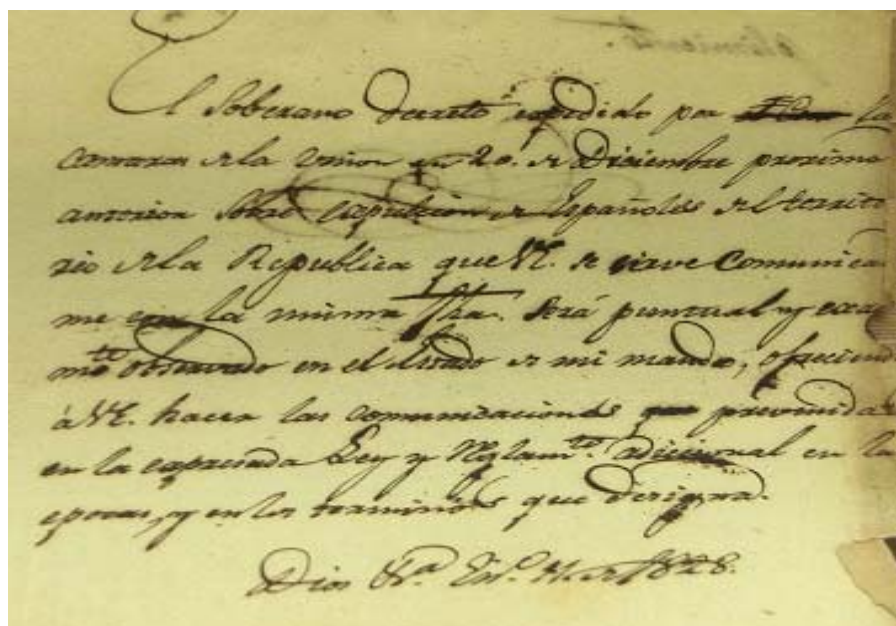 El Soberano decreto expedido por la
camaras de la Union en 20. de Diciembre proximo
anterior sobre expulsion de Españoles del territo
rio de la Republica que VE. se sirve comunica
me con la misma fha. Será puntual y exac
mte. observado en el Estado de mi mando, ofreciend
á VE. hacer las comunicaciones prevenidas
en la expresada Ley y Reglamto. adicional en la
epocas, y en los terminos que designa.
Dios &a. En.o de 1828.